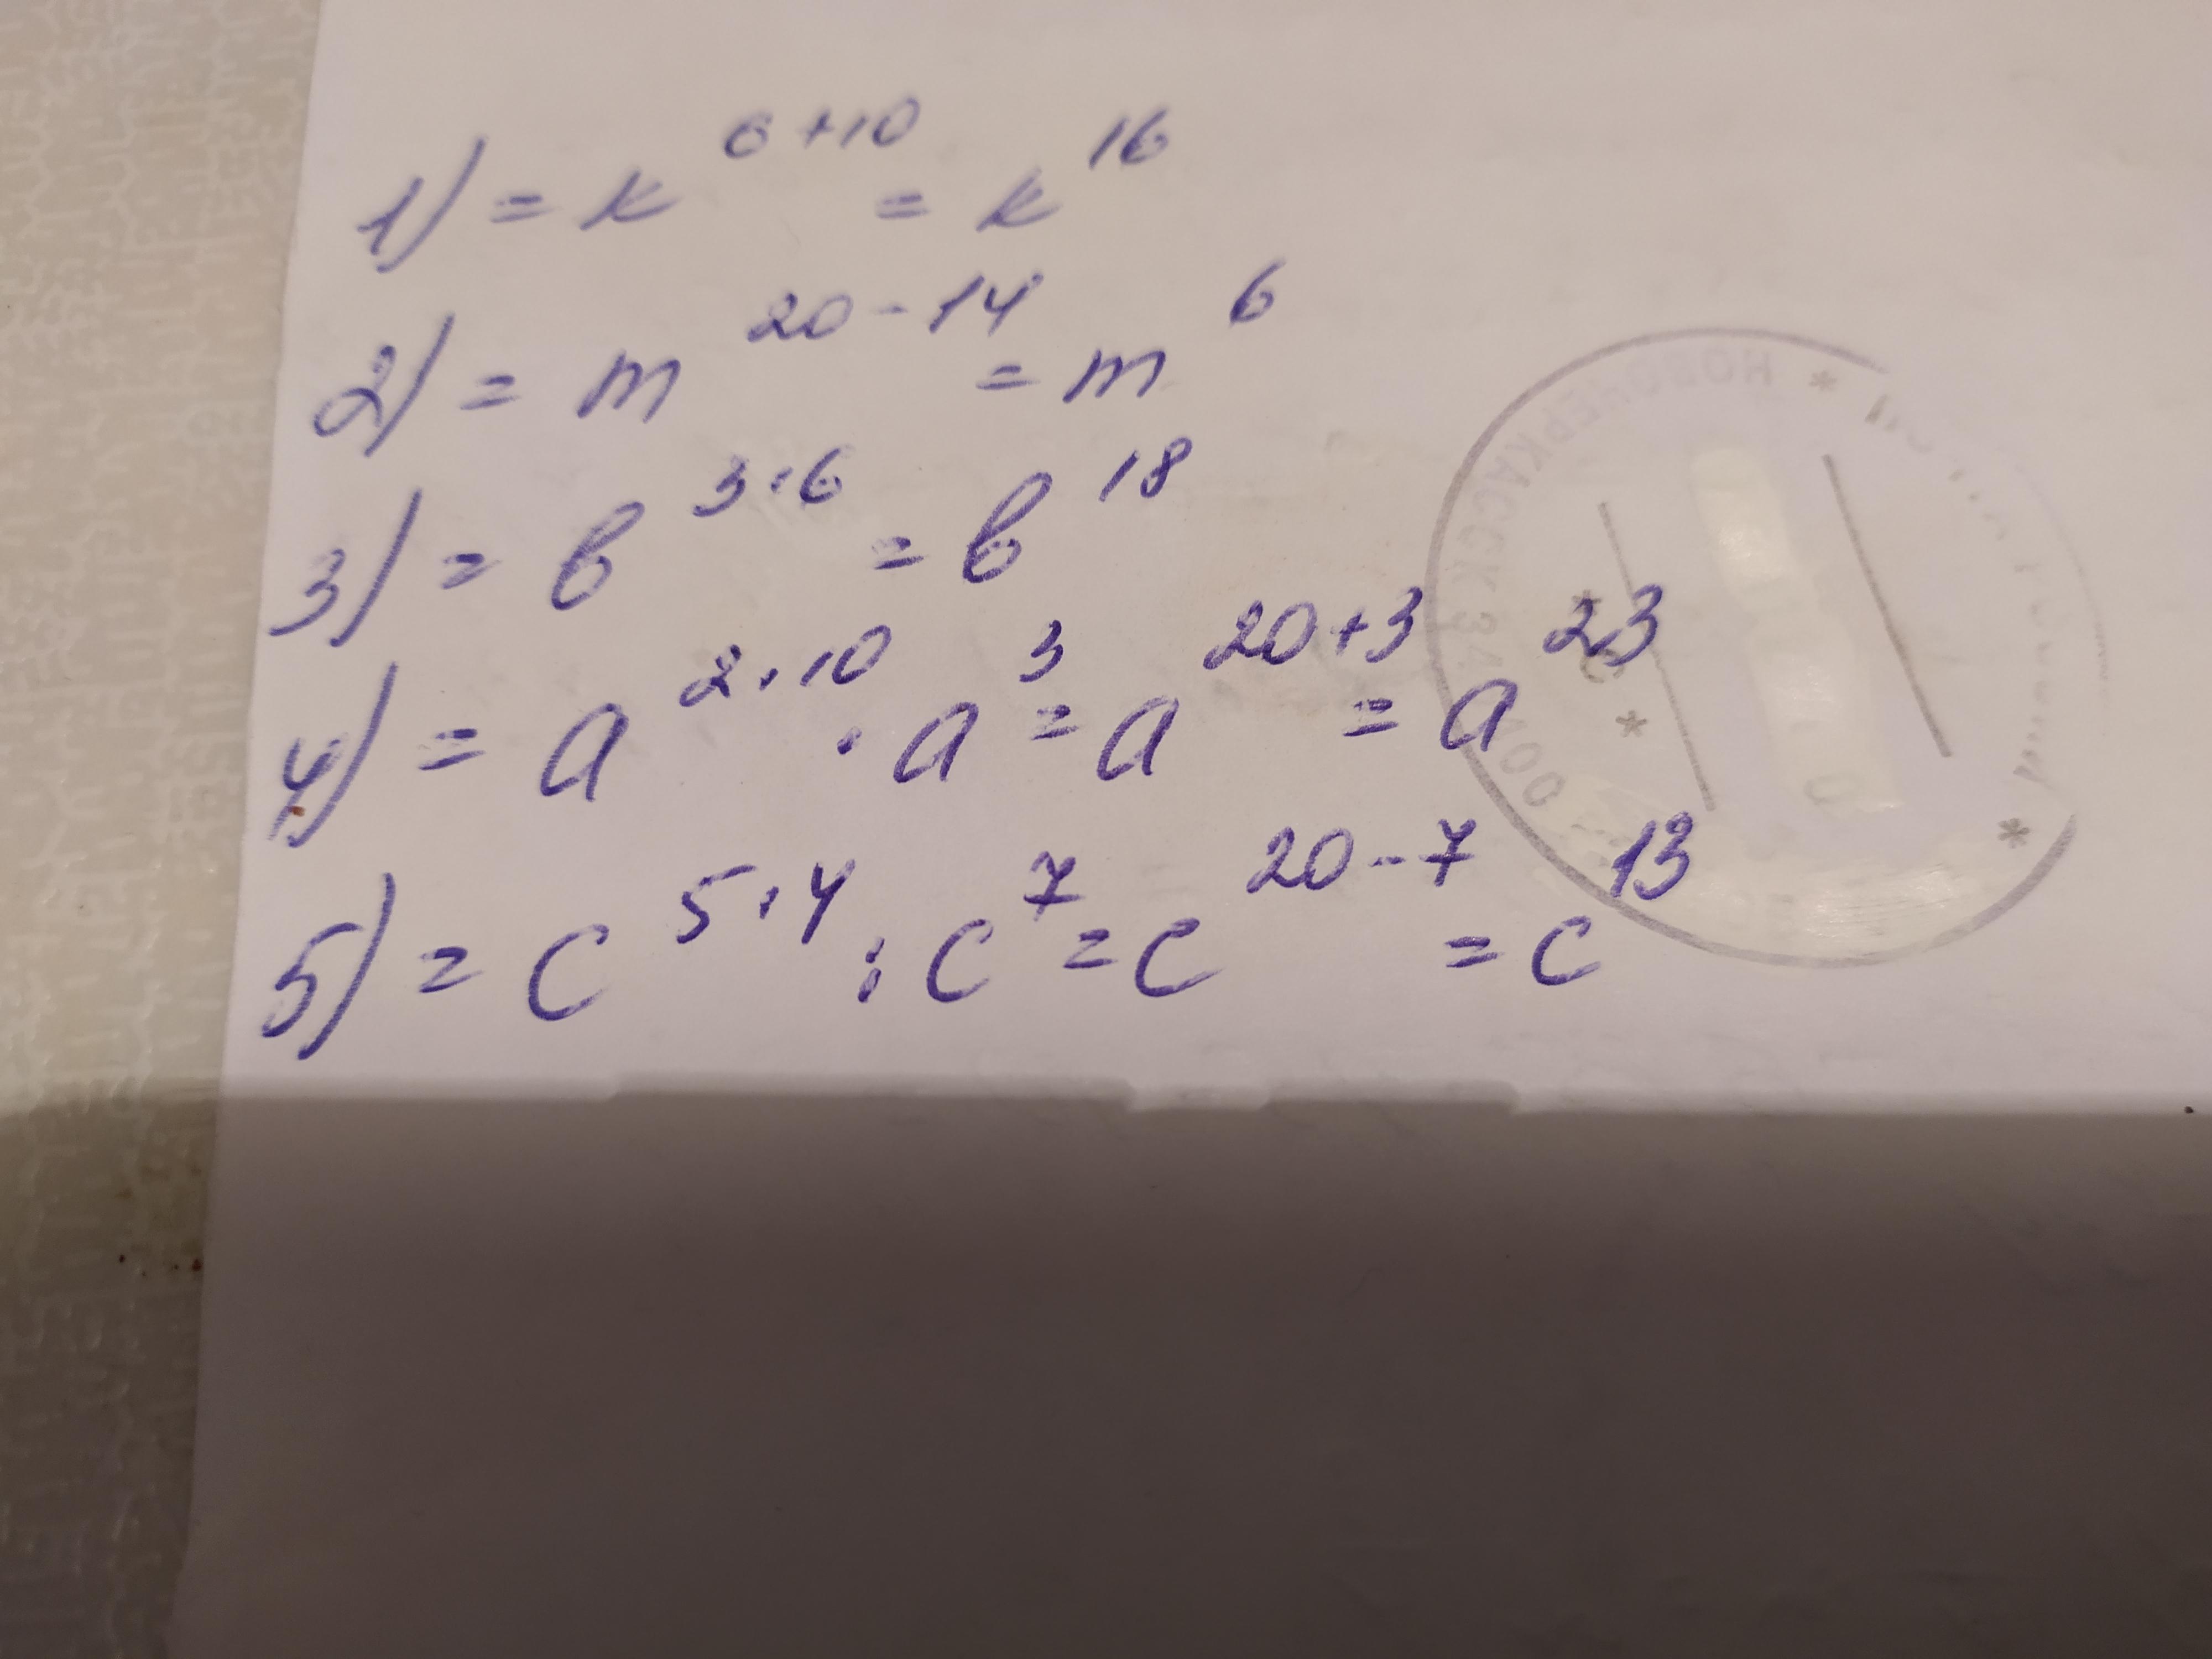 1) = k^{6+10} = k^{16}
2) = m^{20-14} = m^{6}
3) = b^{3·6} = b^{18}
4) = a^{2·10} · a^{3} = a^{20+3} = a^{23}
5) = c^{5·4} : c^{7} = c^{20-7} = c^{13}
НОВОЧЕРКАССК 34